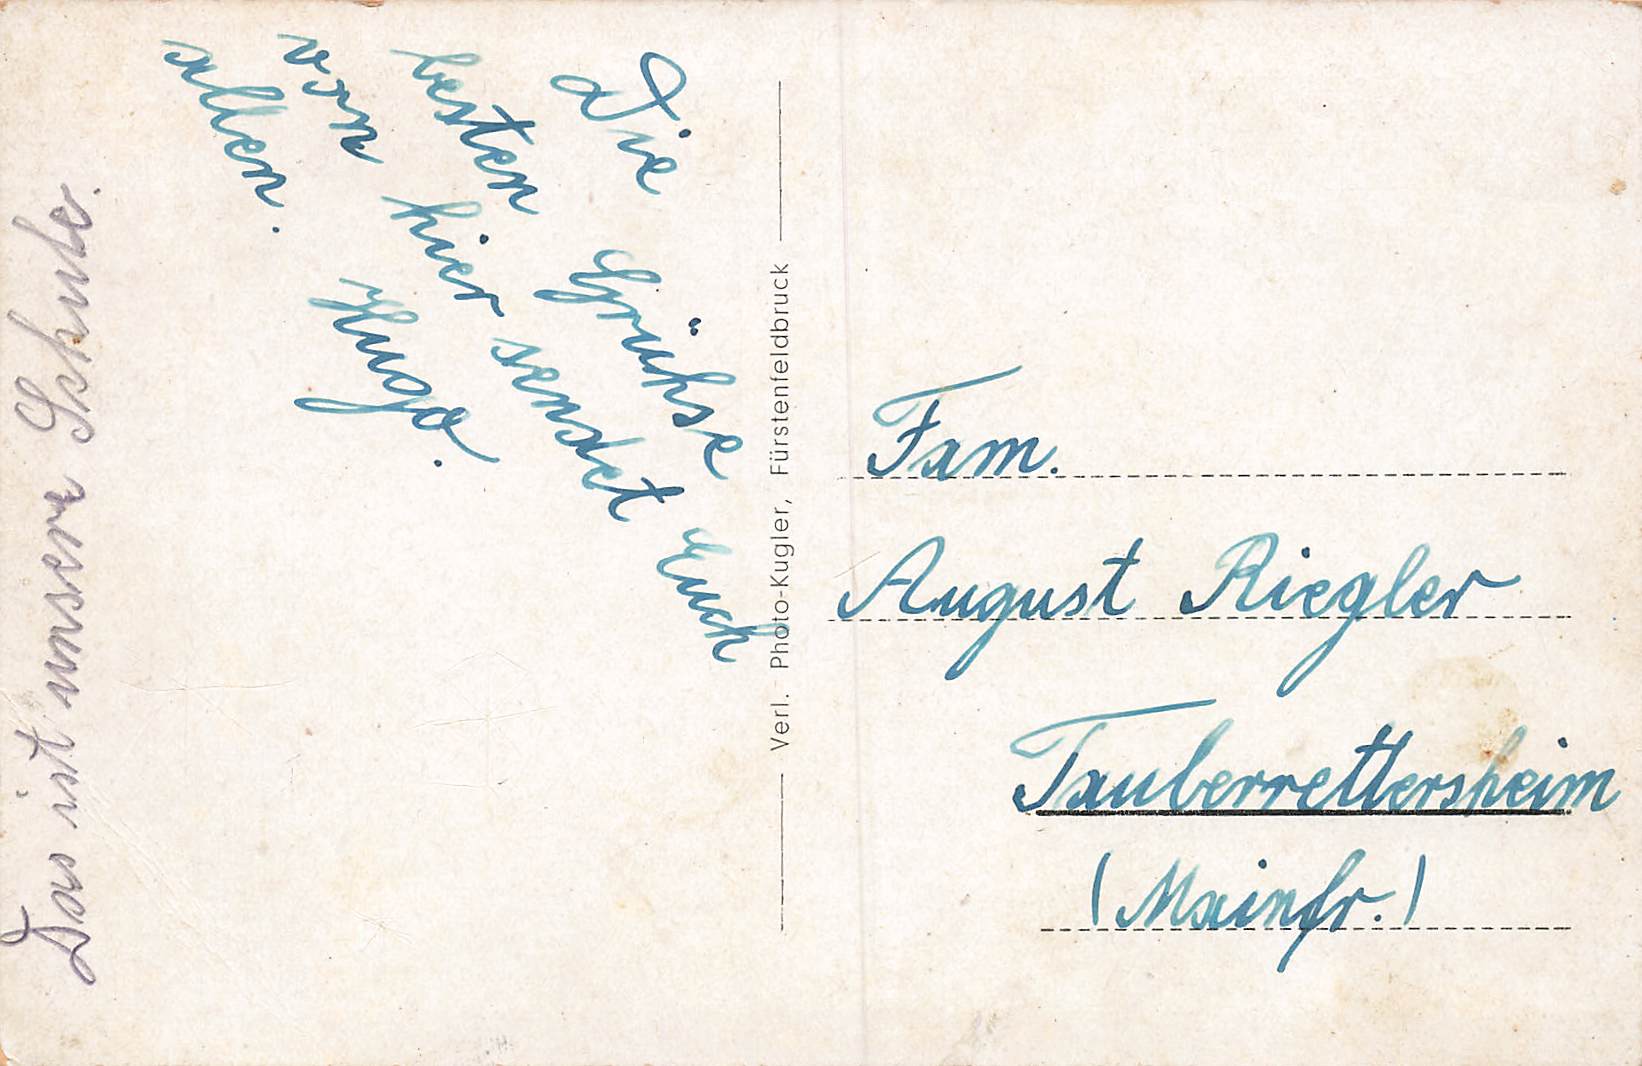 Die Grühse Euch
besten hier sendet
von Hugo.
allen.
Das ist unsere Schule.
Verl. Photo-Kugler, Fürstenfeldbruck
Fam.
August Riegler
Tauberrettersheim
(Mainfr.)